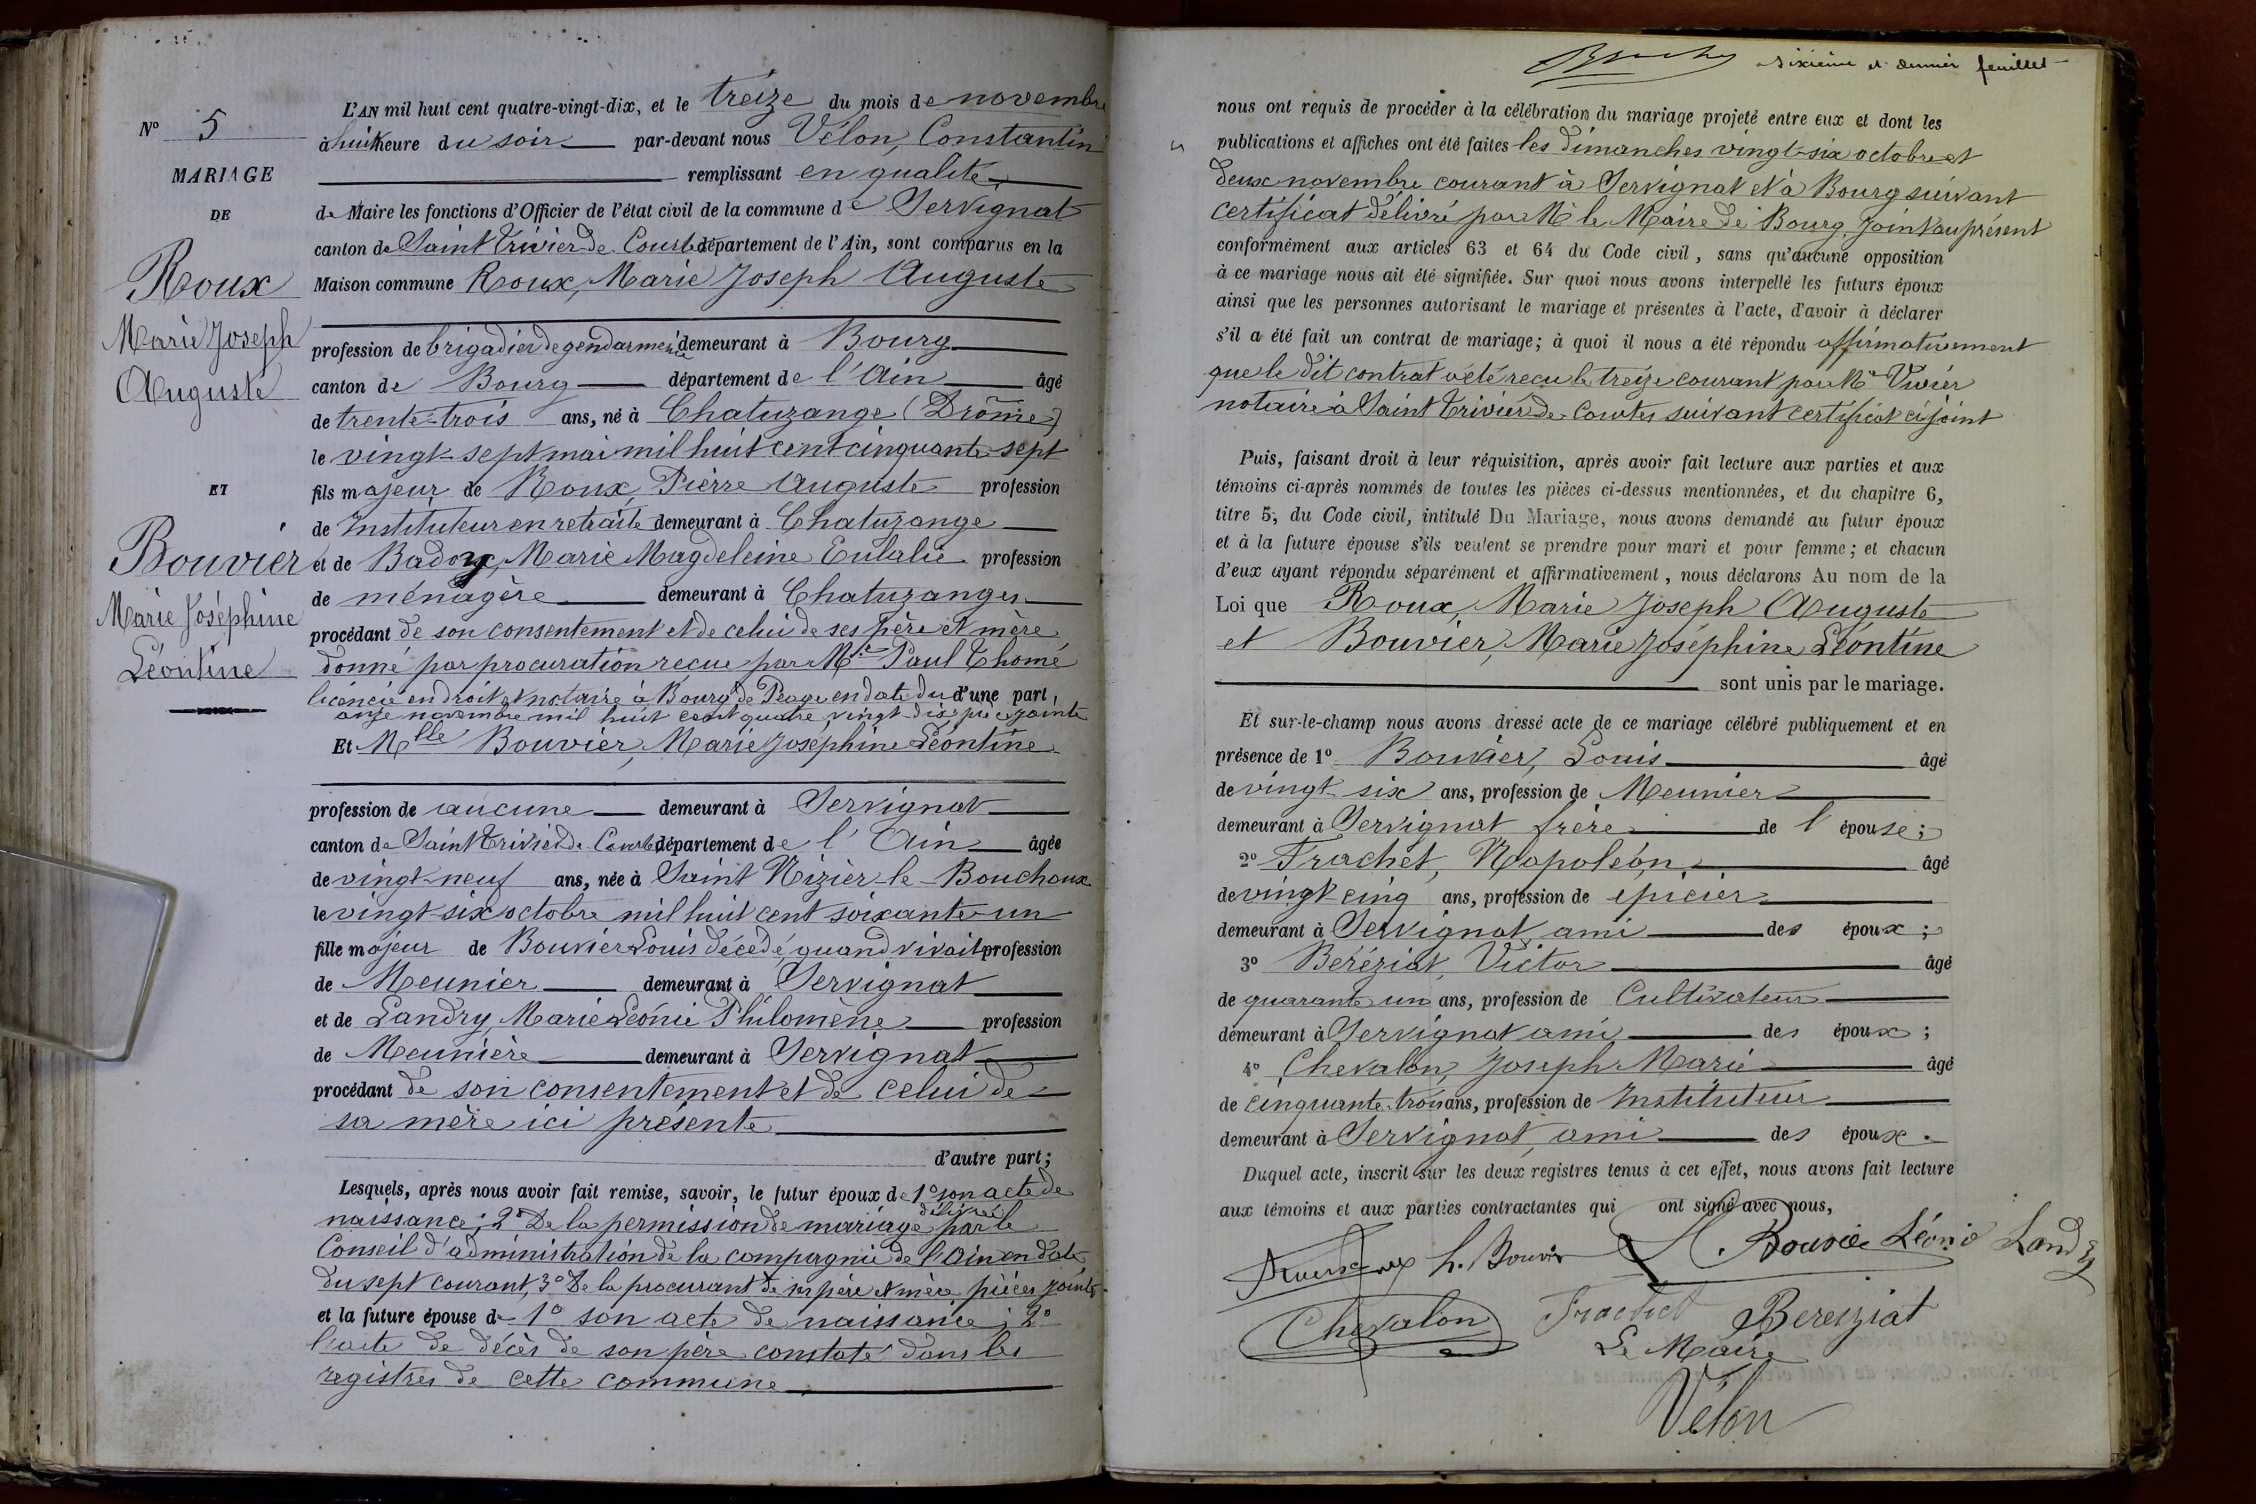 N° 5
MARIAGE
DE
Roux
Marie Joseph
Auguste
ET
Bouvier
Marie Joséphine
Léontine
L'AN mil huit cent quatre-vingt-dix, et le treize du mois de novembre
à huit heure du soir par-devant nous Vélon, Constantin
remplissant en qualité
de Maire les fonctions d'Officier de l'état civil de la commune de Servignat
canton de Saint Trivier de Courtes département de l'Ain, sont comparus en la
Maison commune Roux, Marie Joseph Auguste
profession de brigadier de gendarmerie demeurant à Bourg
canton de Bourg département de l'Ain âgé
de trente-trois ans, né à Chatuzange (Drôme)
le vingt-sept mai mil huit cent cinquante-sept
fils majeur de Roux, Pierre Auguste profession
de Instituteur en retraite demeurant à Chatuzange
et de Marie Magdeleine Eulalie profession
de ménagère demeurant à Chatuzange
procédant de son consentement et de celui de ses père et mère
donné par procuration reçue par Me Paul Thomé
licencié en droit et notaire à Bourg de Péage en date du d'une part,
onze novembre mil huit cent quatre vingt-dix pièce jointe
Et Mlle Bouvier, Marie Joséphine Léontine
profession de aucune demeurant à Servignat
canton de Saint Trivier de Courtes département de l'Ain âgée
de vingt-neuf ans, née à Saint Nizier le-Bouchoux
le vingt-six octobre mil huit cent soixante-un
fille majeur de Bouvier Louis décédé, quand vivait profession
de Meunier demeurant à Servignat
et de Landry, Marie Léonie Philomène profession
de Meunière demeurant à Servignat
procédant de son consentement et de celui de
sa mère ici présente
d'autre part;
Lesquels, après nous avoir fait remise, savoir, le futur époux de 1° son acte de
naissance; 2° De la permission de mariage délivrée par le
Conseil d'administration de la compagnie de l'Ain en date
du sept courant, 3° De la procurant de ses père et mère pièces jointes
et la future épouse de 1° son acte de naissance; 2°
l'acte de décès de son père constaté dans les
registres de cette commune
sixième et dernier feuillet
nous ont requis de procéder à la célébration du mariage projeté entre eux et dont les
publications et affiches ont été faites les dimanches vingt-six octobre et
deux novembre courant à Servignat et à Bourg suivant
certificat délivré par Mr le Maire de Bourg, joint au présent
conformément aux articles 63 et 64 du Code civil, sans qu'aucune opposition
à ce mariage nous ait été signifiée. Sur quoi nous avons interpellé les futurs époux
ainsi que les personnes autorisant le mariage et présentes à l'acte, d'avoir à déclarer
s'il a été fait un contrat de mariage; à quoi il nous a été répondu affirmativement
que le dit contrat a été reçu le treize courant par Me Vivier
notaire à Saint Trivier de Courtes suivant certificat ci joint
Puis, faisant droit à leur réquisition, après avoir fait lecture aux parties et aux
témoins ci-après nommés de toutes les pièces ci-dessus mentionnées, et du chapitre 6,
titre 5, du Code civil, intitulé Du Mariage, nous avons demandé au futur époux
et à la future épouse s'ils veulent se prendre pour mari et pour femme; et chacun
d'eux ayant répondu séparément et affirmativement, nous déclarons Au nom de la
Loi que Roux, Marie Joseph Auguste
et Bouvier, Marie Joséphine Léontine
sont unis par le mariage.
Et sur-le-champ nous avons dressé acte de ce mariage célébré publiquement et en
présence de 1° Bouvier, Louis âgé
de vingt-six ans, profession de Meunier
demeurant à Servignat frère de l'épouse;
2° Frachet, Napoléon, âgé
de vingt cinq ans, profession de épicier
demeurant à Servignat, ami des époux;
3° Béréziat, Victor âgé
de quarante un ans, profession de Cultivateur
demeurant à Servignat ami des époux;
4° Chevalon, Joseph Marie âgé
de cinquante-trois ans, profession de Instituteur
demeurant à Servignat, ami des époux.
Duquel acte, inscrit sur les deux registres tenus à cet effet, nous avons fait lecture
aux témoins et aux parties contractantes qui ont signé avec nous,
L. Bouvier L. Bouvier Léonie Landry
Chevalon Frachet Bereiziat
Le Maire
Vélon